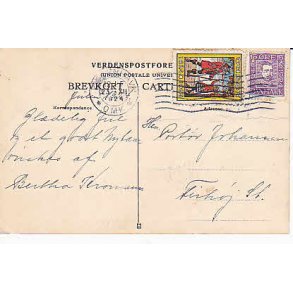 VERDENSPOSTFORE
(UNION POSTALE UNIVER
BREVKORT. CARD
Korrespondance
Glædelig Jul
et godt Nytaar
ønskes af
Bertha Kromann
Hr. Portør Johannsen
Ferhøj St.